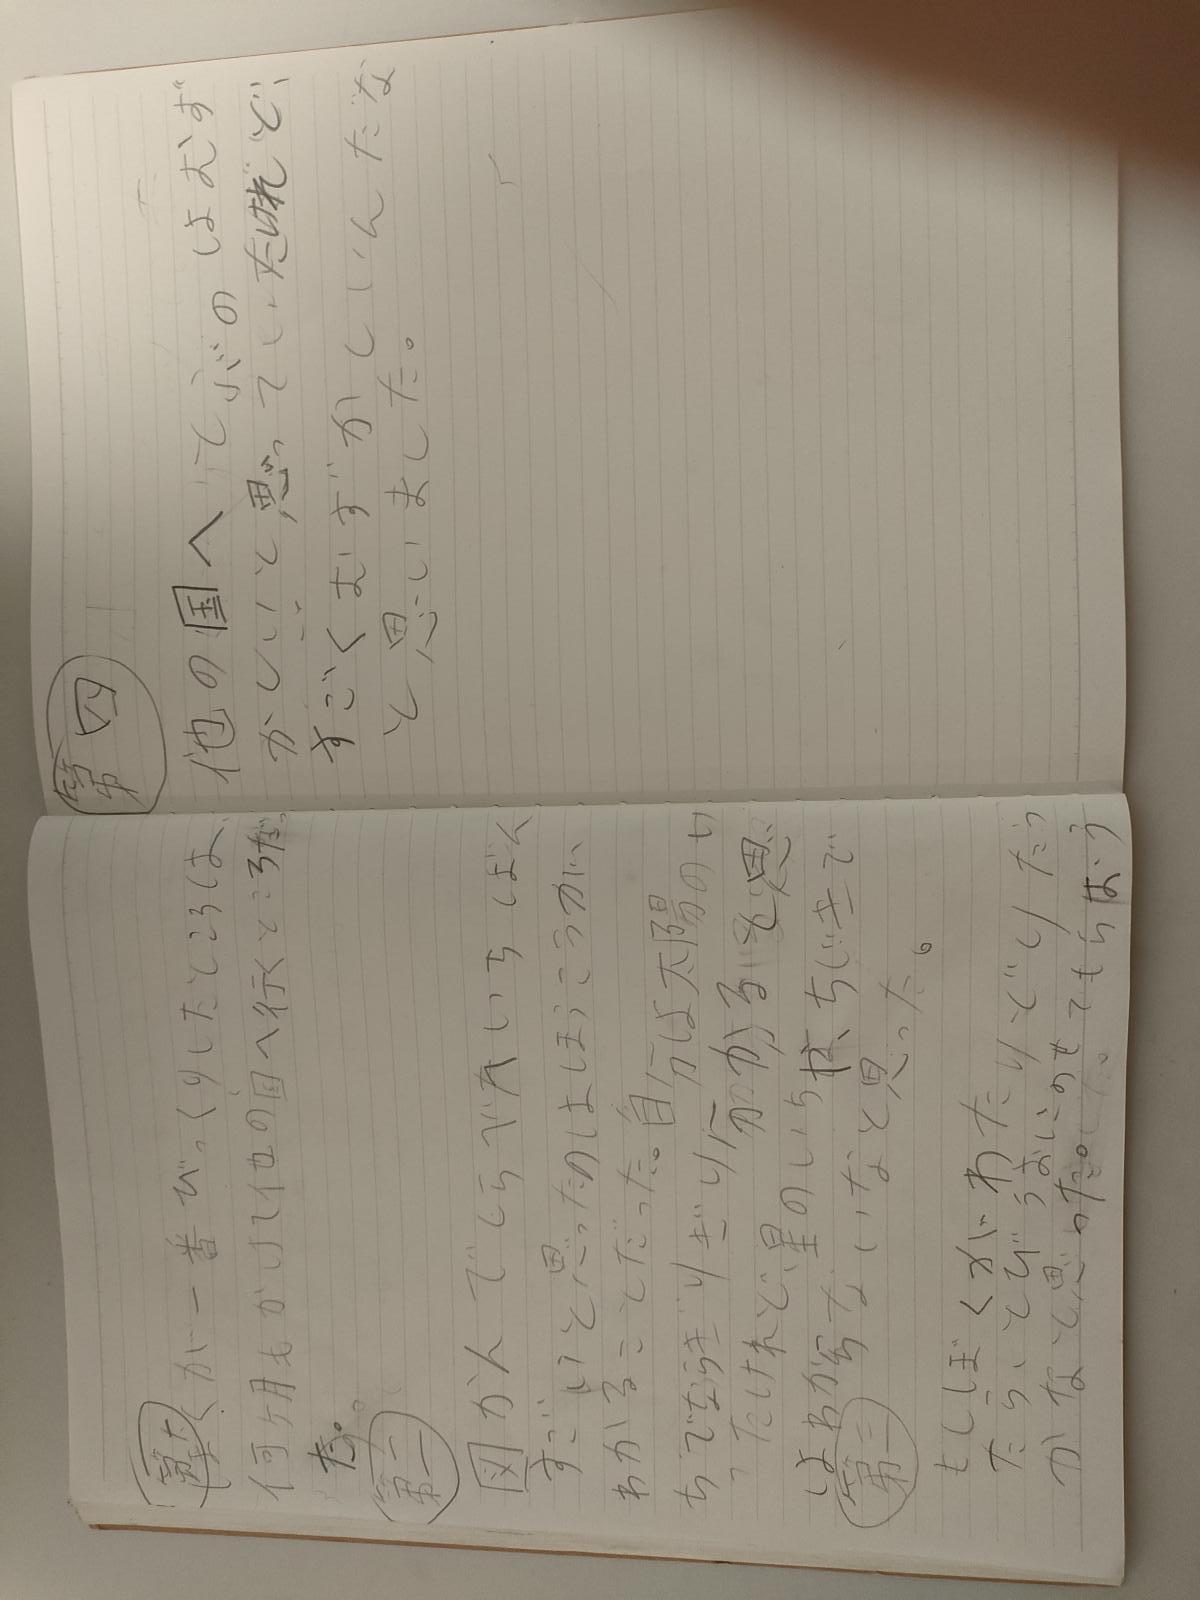 第一
ぼくが一番びっくりしたところは、
何ヶ月もかけて他の国へ行くところだっ
た。
第二
図かんでしらべれいちばん
すごいと思ったのはほうこうが
わかることだった。自分は太陽のい
ちでならぎりぎり分かると思
ったけれど、星のいち
は分からないなと思った。
第三
もしぼくがわたりどりだっ
たら、とび
かなと思った。
第四
他の国へってぶのはむず
かしいと思っていたけれど、
すごくむずかしいんだな
と思いました。